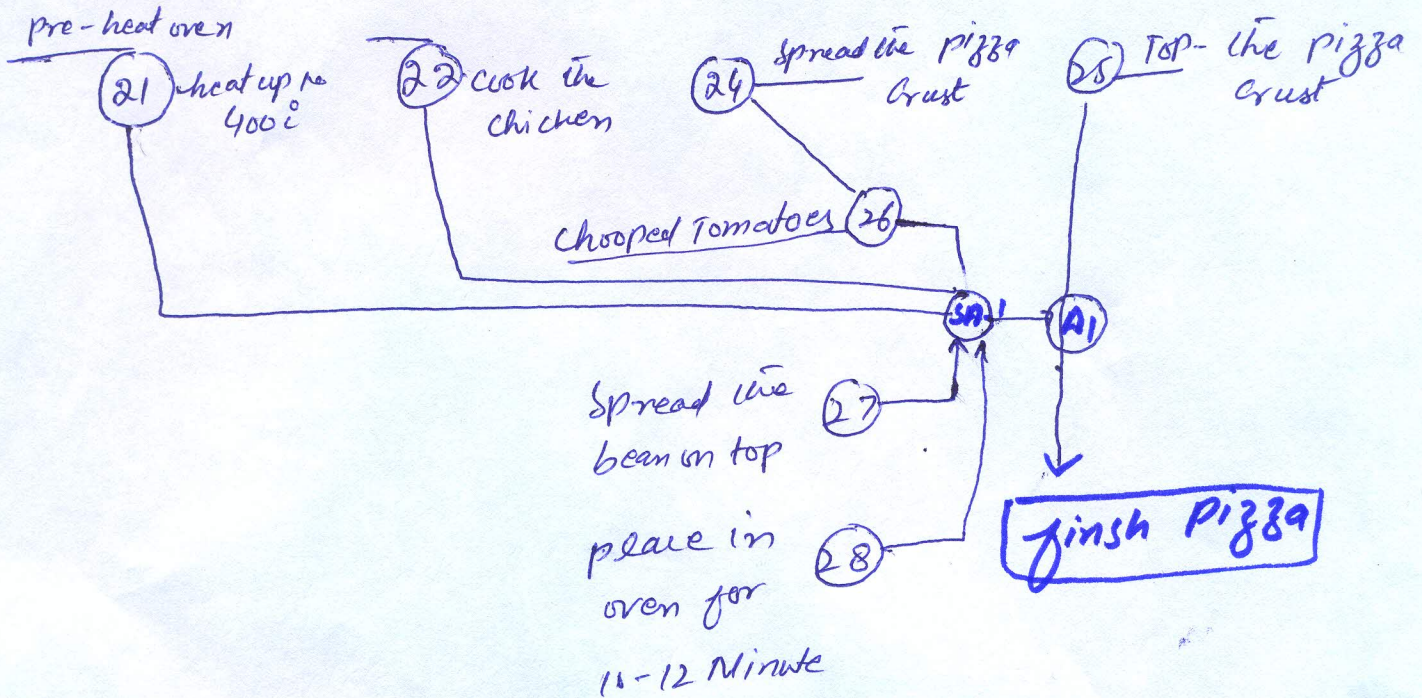 pre-heat oven
21 heat up to
400°
22 cook the
chicken
24 Spread the pizza
Crust
25 Top- the pizza
Crust
Chooped Tomatoes 26
SA1 A1
Spread the 27
bean on top
place in 28
oven for
11-12 Minute
finsh Pizza